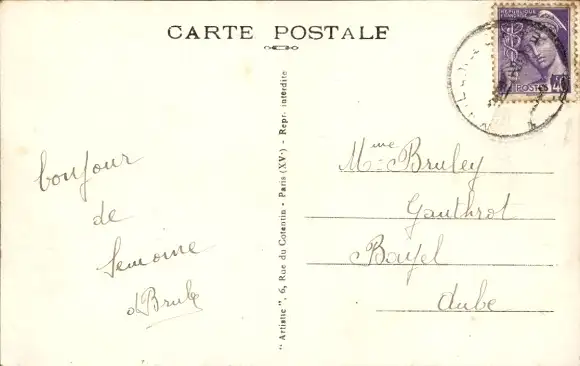 CARTE POSTALE
bonjour
de
Semoine
dBruley
"Artistic", 6, Rue du Cotentin - Paris (XVᵉ) - Repr. interdite
RÉPUBLIQUE
FRANÇAISE
POSTES 40
Mme Bruley
Gauthrot
Bayel
Aube